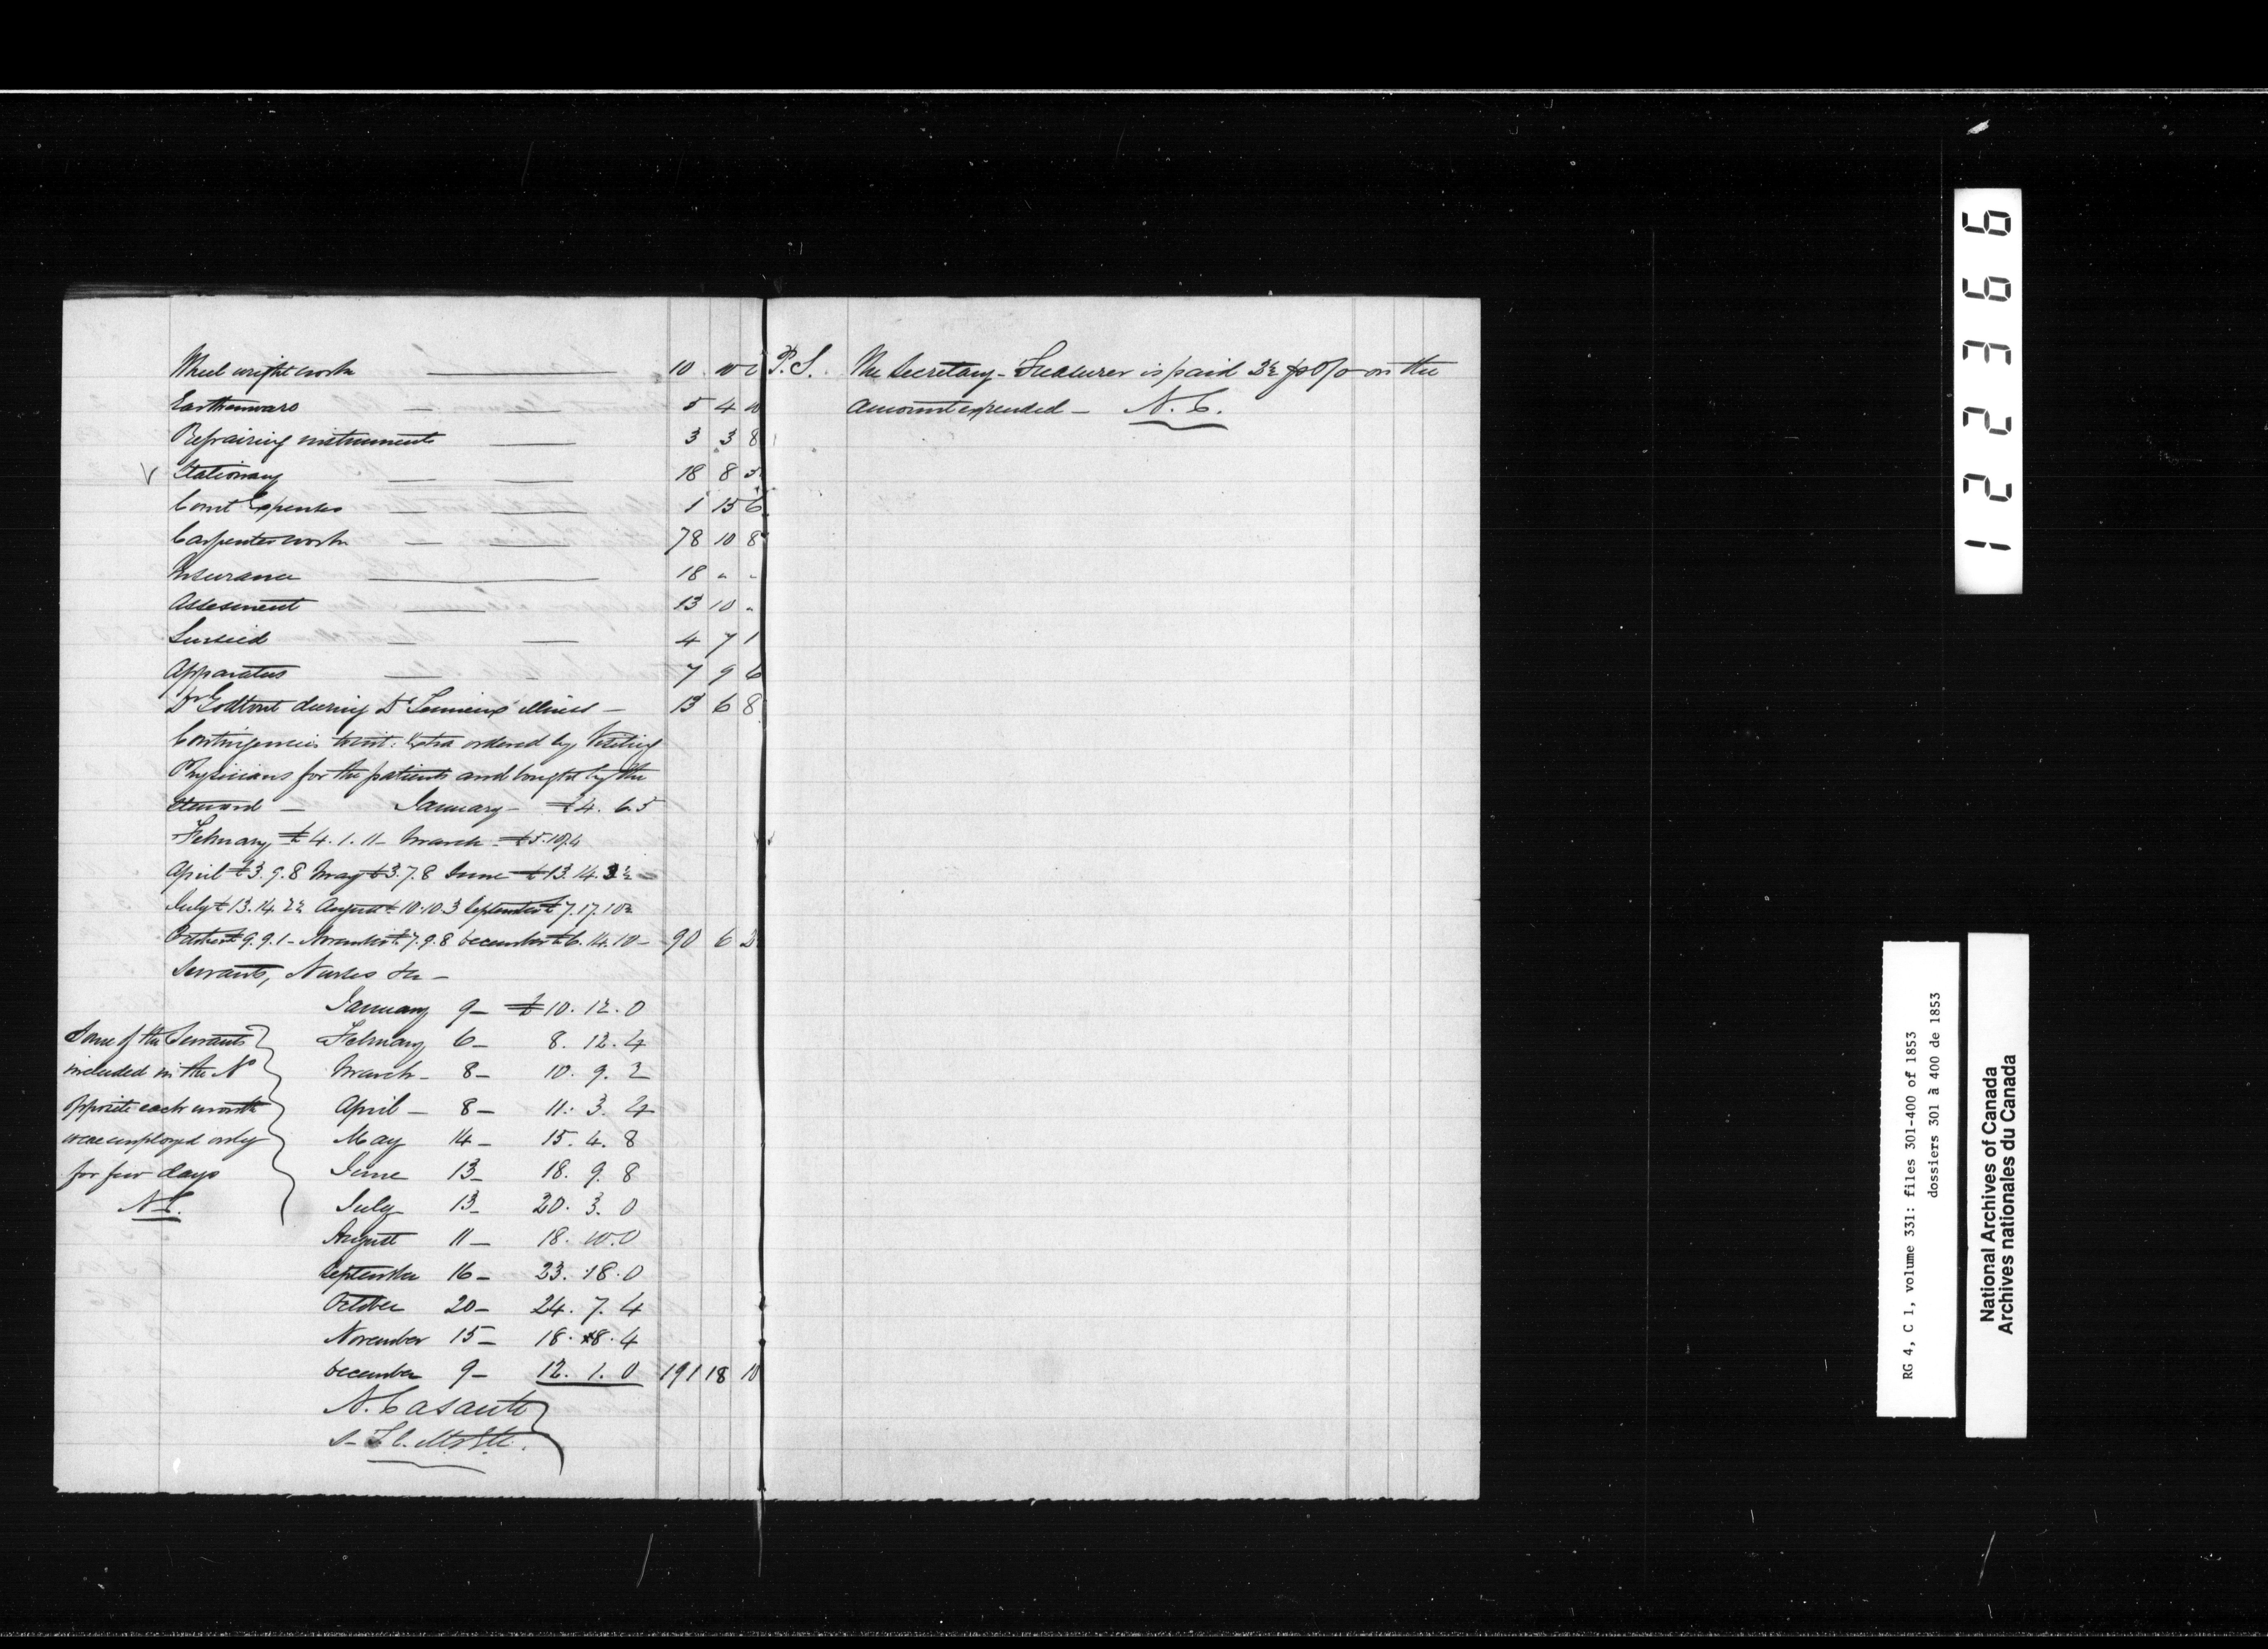 Wheel wright work — 10 10 0
Earthenware — — 5 4 10
Repairing instruments — 3 3 8
V Stationary — — 18 8 5
Court Expenses — — 1 15 6
Carpenter work — — 78 10 8
Insurance — 18 " "
Assesment — 13 10 "
Linseed — — 4 7 1
Apparatus — — 7 9 6
Dr Godtout during Dr Lemieux illness — 13 6 8
Contingencies vizt: Extra ordered by Visiting
Physicians for the patients and bought by the
Steward — January — £4. 6. 5
February £4. 1. 11 — March — £5. 10. 4
April £3. 9. 8 May £3. 7. 8 June £13. 14. 3½ —
July £13. 14. 2½ August £10. 10. 3 September £7. 17. 10½
October £9. 9. 1 — November £7. 9. 8 December £6. 14. 10 — 90 6 2
Servants, Nurses &c —
January 9 — £10. 12. 0
February 6 — 8. 12. 4
March — 8 — 10. 9. 2
April — 8 — 11. 3. 4
May 14 — 15. 4. 8
June 13 — 18. 9. 8
July 13 — 20. 3. 0
August 11 — 18. 10. 0
September 16 — 23. 18. 0
October 20 — 24. 7. 4
November 15 — 18. 8. 4
December 9 — 12. 1. 0 191 18 10
Some of the Servants
included in the No
opposite each month
were employed only
for few days
N. C.
N. Casault
P. S. The Secretary-Treasurer is paid 3½ p 0/0 on the
amount expended — N. C.
122366
RG 4, C 1, volume 331: files 301-400 of 1853
dossiers 301 à 400 de 1853
National Archives of Canada
Archives nationales du Canada